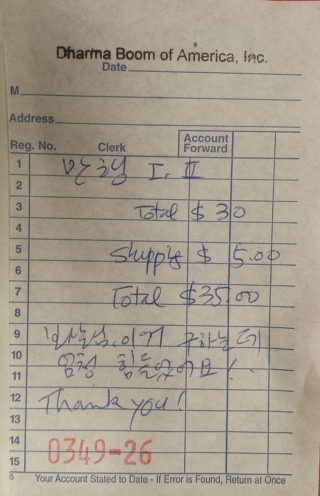 Dharma Boom of America, Inc.
Date
M
Address
Reg. No. Clerk Account Forward
1
I, II
2
3 Total $ 30
4
5 Shipping $ 5.00
6
7 Total $35.00
8
9 구하는데
10 엄청 힘들었어요!
11
12 Thank you!
13
14
15 0349-26
6 Your Account Stated to Date - If Error is Found, Return at Once